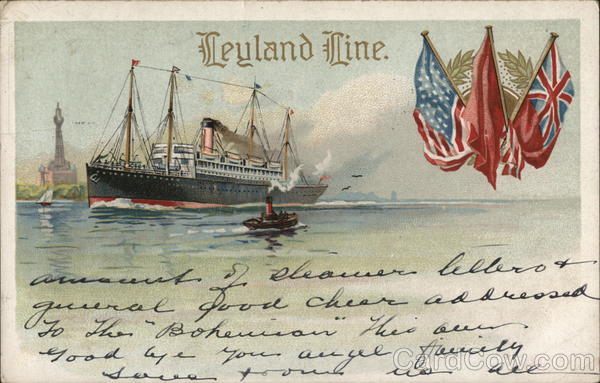 Leyland Line.
amount of steamer letters +
general good cheer addressed
To The "Bohemian" This am
Good bye you angel family
love from us all
CardCow.com